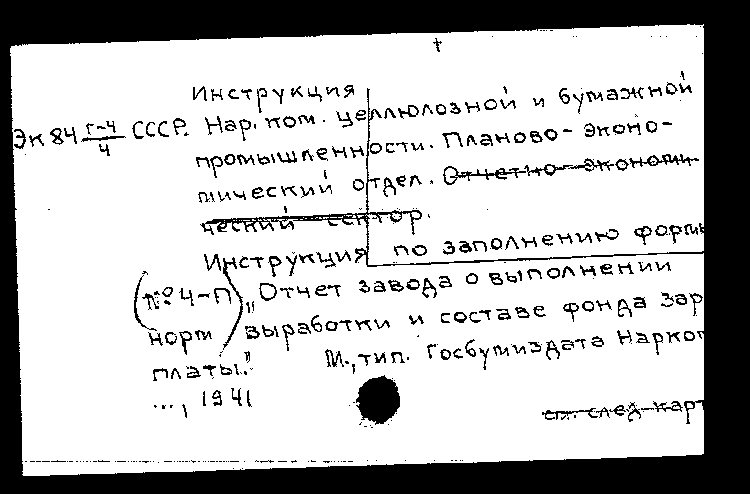 Инструкция
Эк 84 г-4/4 СССР. Нар. ком. целлюлозной и бумажной
промышленности. Планово-эконо-
мический отдел. Отчетно-экономи-
ческий сектор.
Инструкция по заполнению формы
(№ 4-П) „Отчет завода о выполнении
норм выработки и составе фонда зар
платы." М., тип. Госбумиздата Нарком
..., 1941
см. след. карт